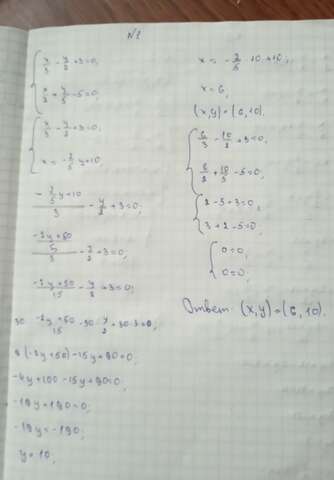 №2
x/3 - y/2 + 3 = 0,
x/2 + y/5 - 5 = 0;
x/3 - y/2 + 3 = 0,
x = -2/5 y + 10;
(-2/5 y + 10)/3 - y/2 + 3 = 0;
((-2y + 50)/5)/3 - y/2 + 3 = 0;
(-2y + 50)/15 - y/2 + 3 = 0;
30 · (-2y + 50)/15 - 30 · y/2 + 30 · 3 = 0;
2(-2y + 50) - 15y + 90 = 0;
-4y + 100 - 15y + 90 = 0;
-19y + 190 = 0;
-19y = -190;
y = 10;
x = -2/5 · 10 + 10;
x = 6;
(x, y) = (6, 10).
6/3 - 10/2 + 3 = 0,
6/2 + 10/5 - 5 = 0;
2 - 5 + 3 = 0,
3 + 2 - 5 = 0;
0 = 0,
0 = 0.
Ответ: (x, y) = (6, 10).